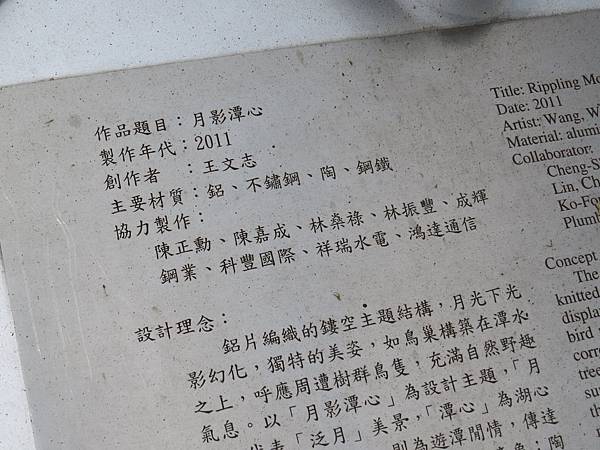 作品題目：月影潭心
製作年代：2011
創作者　：王文志
主要材質：鋁、不鏽鋼、陶、鋼鐵
協力製作：
陳正勳、陳嘉成、林燊祿、林振豐、成輝
鋼業、科豐國際、祥瑞水電、鴻達通信
設計理念：
鋁片編織的鏤空主題結構，月光下光
影幻化，獨特的美姿，如鳥巢構築在潭水
之上，呼應周遭樹群鳥隻，充滿自然野趣
氣息。以「月影潭心」為設計主題，「月
代表「泛月」美景，「潭心」為湖心
則為遊潭閒情，傳達
陶
Title: Rippling Mo
Date: 2011
Artist: Wang, W
Material: alumi
Collaborator:
Cheng-S
Lin, Ch
Ko-Fon
Plumb
Concept
The
knitted
displa
bird
corr
tree
su
the